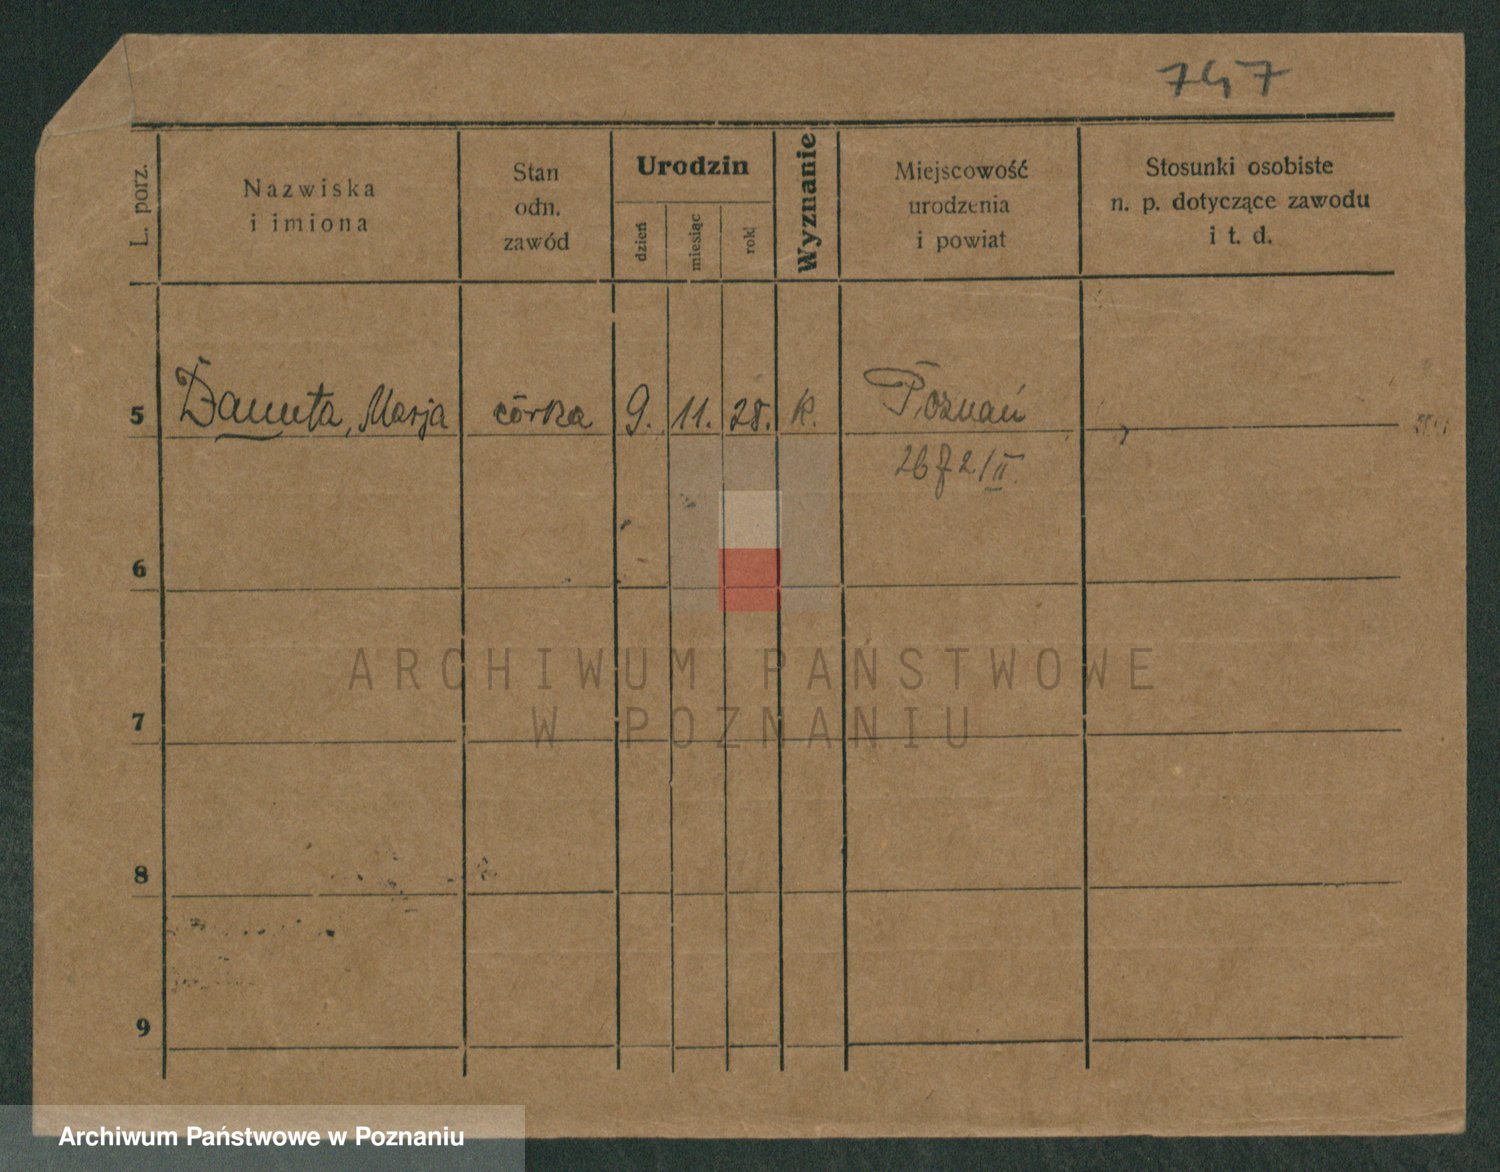 747
L. porz.
Nazwiska
i imiona
Stan
odn.
zawód
Urodzin
dzień
miesiąc
rok
Wyznanie
Miejscowość
urodzenia
i powiat
Stosunki osobiste
n. p. dotyczące zawodu
i t. d.
5 Danuta, Marja córka 9. 11. 28. k. Poznań
6
7
8
9
ARCHIWUM PAŃSTWOWE
W POZNANIU
Archiwum Państwowe w Poznaniu